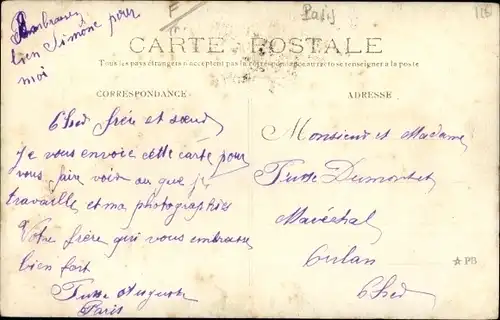 Embrasser
bien Simone pour
moi
Paris
CARTE POSTALE
Tous les pays étrangers n'acceptent pas la correspondance au recto se renseigner à la poste
CORRESPONDANCE
ADRESSE
Cher frère et sœur
je vous envoie cette carte pour
vous faire voir ou que je
travaille et ma photographies
Votre frère qui vous embrasse
bien fort
Auguste
Paris
Monsieur et Madame
Maréchal
Culan
Cher
PB